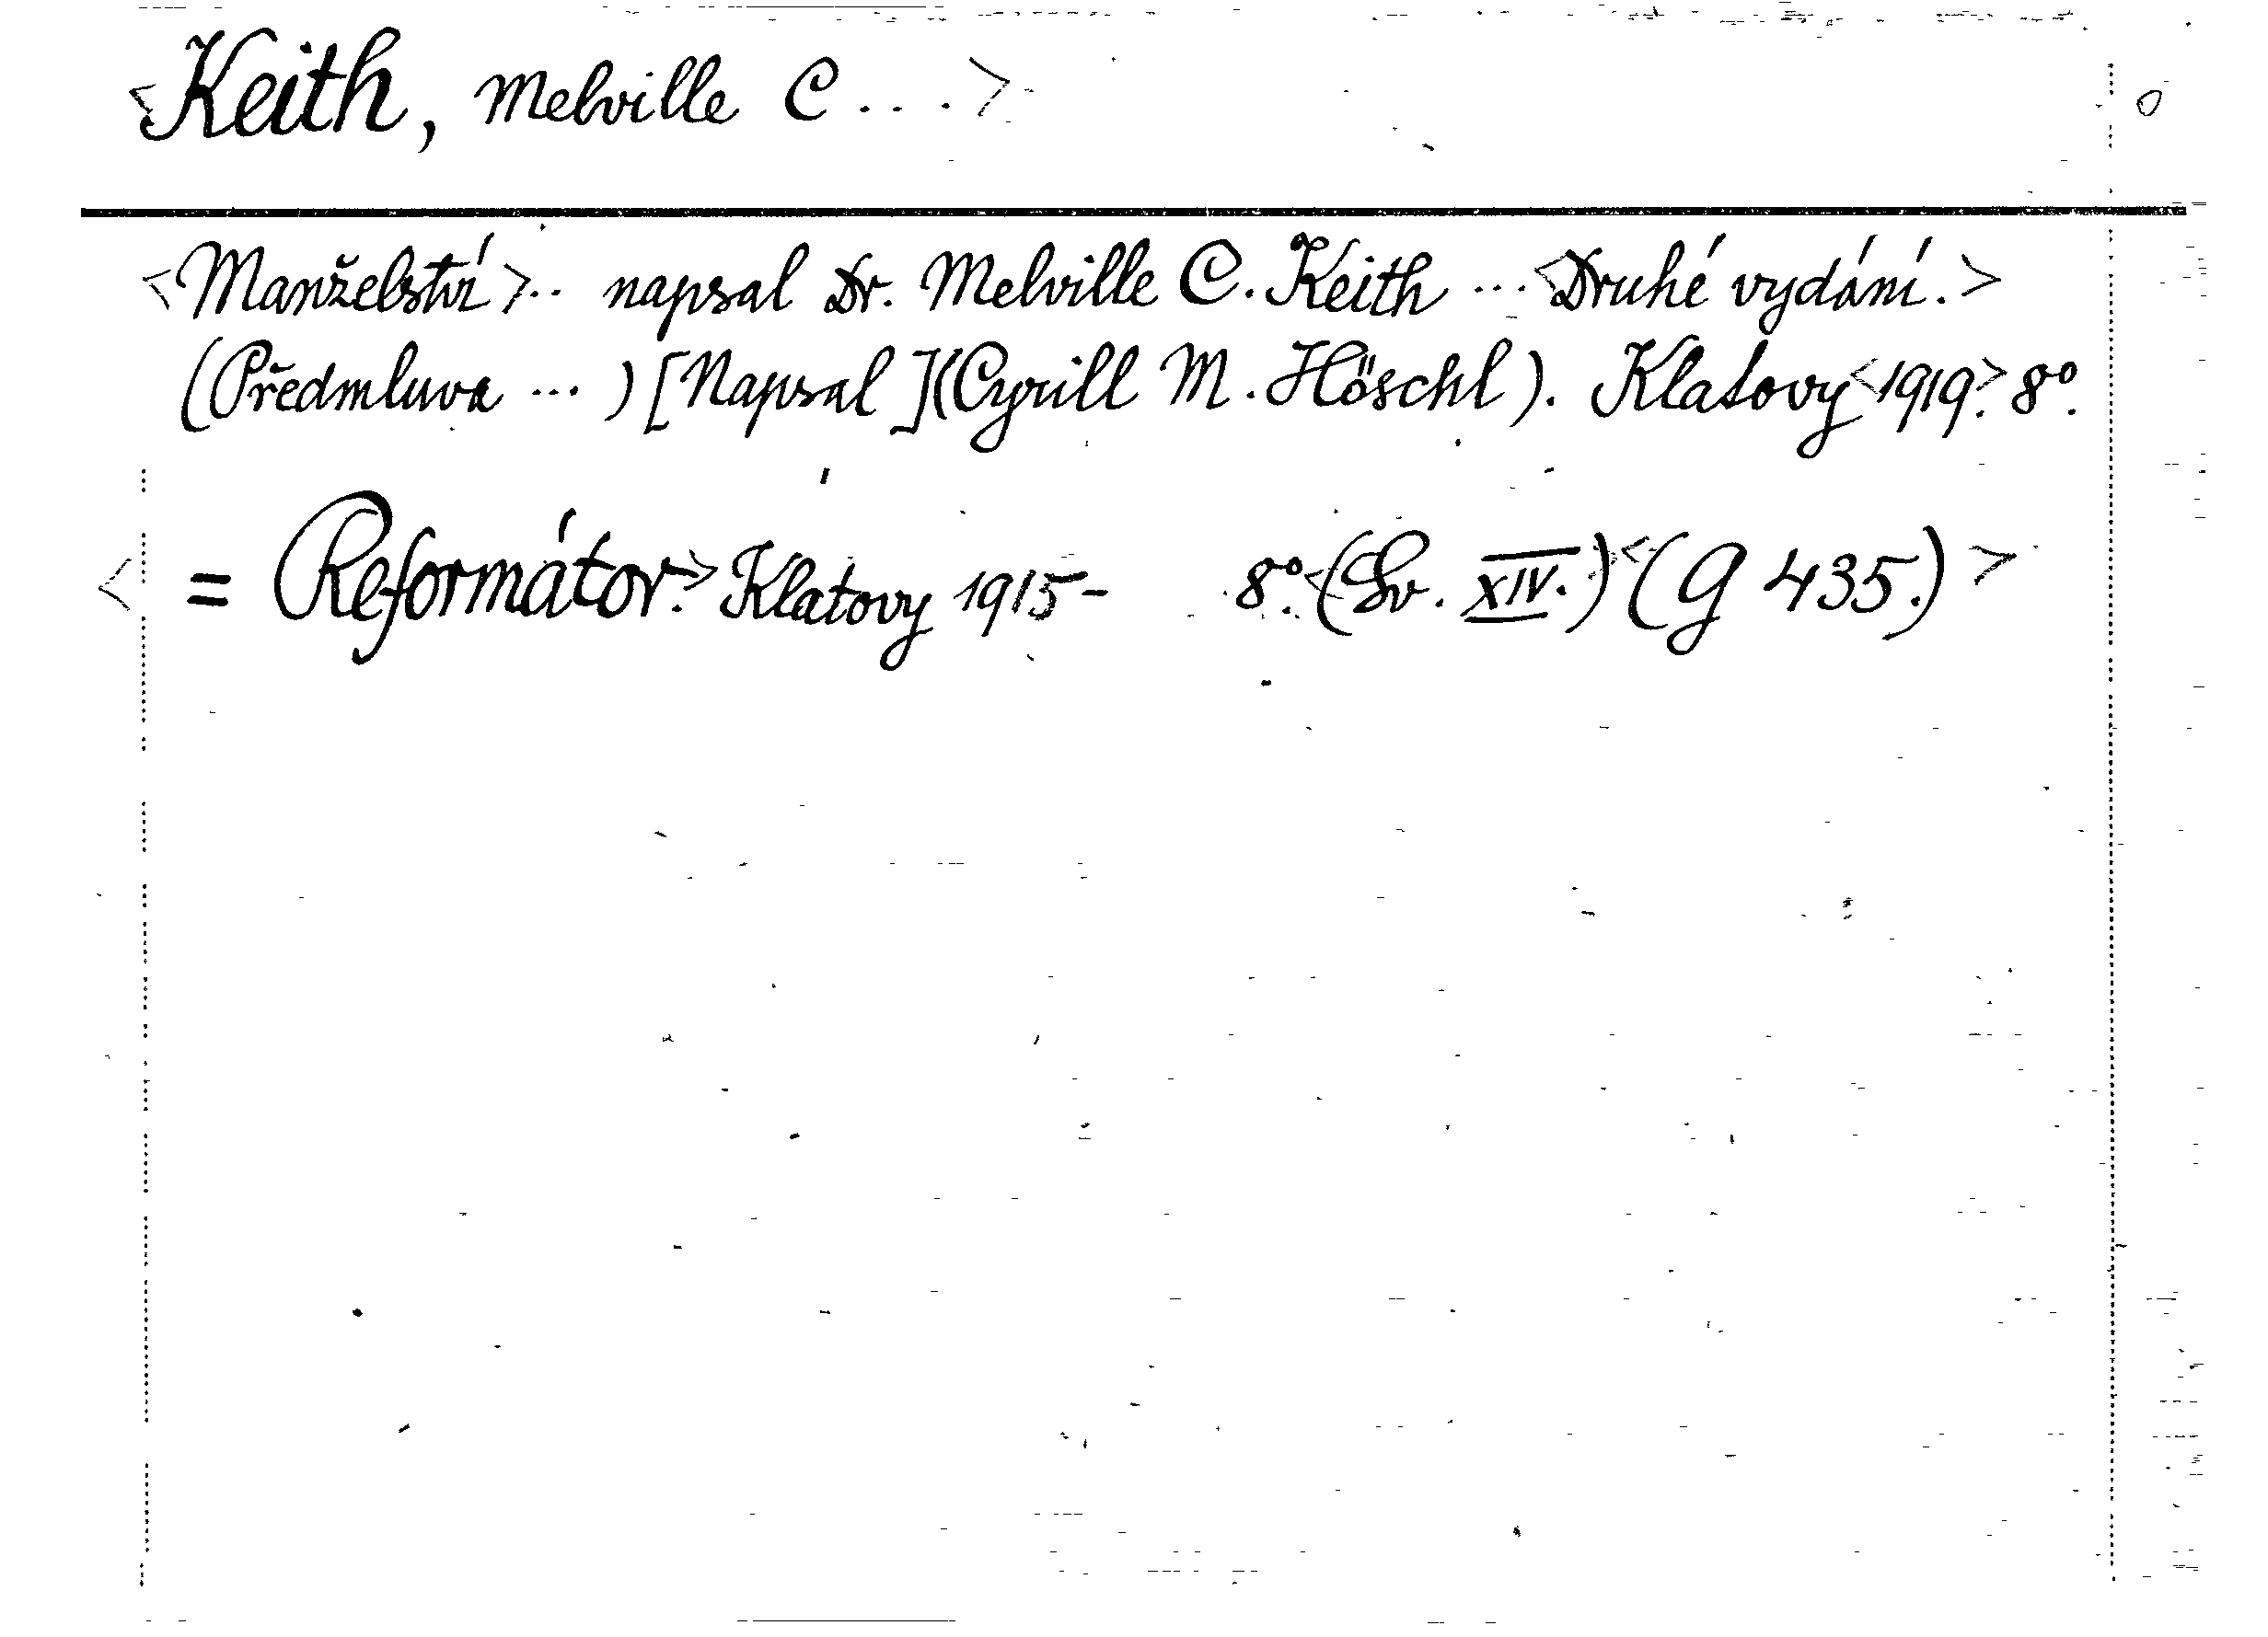 <Keith, Melville C...> o
<Manželství>.. napsal Dr. Melville C. Keith ... <Druhé vydání.>
(Předmluva ...) [Napsal] (Cyrill M. Höschl). Klatovy <1919>. 8°.
< = Reformátor.> Klatovy 1915- 8°. <(Sv. XIV.)> <(G 435.)>